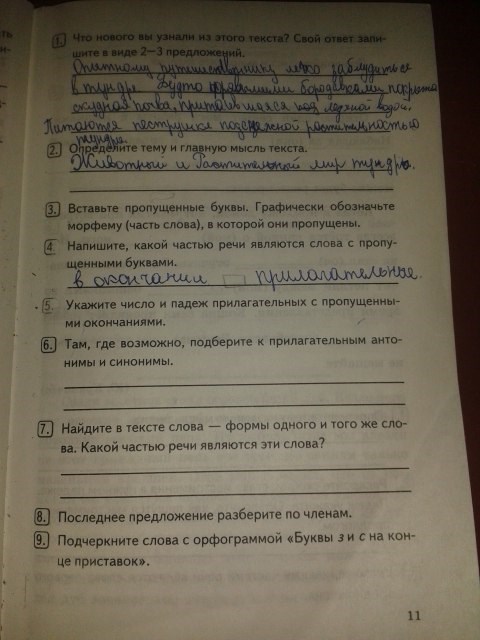 1. Что нового вы узнали из этого текста? Свой ответ запи-
шите в виде 2—3 предложений.
Опытному путешественнику легко заблудиться
в тундре. Будто бородавками покрыта
скудная почва, притаившаяся под ледяной водой.
Питаются пеструшки подснежной растительностью
тундры.
2. Определите тему и главную мысль текста.
Животный и Растительный мир тундры.
3. Вставьте пропущенные буквы. Графически обозначьте
морфему (часть слова), в которой они пропущены.
4. Напишите, какой частью речи являются слова с пропу-
щенными буквами.
в окончании прилагательные.
5. Укажите число и падеж прилагательных с пропущенны-
ми окончаниями.
6. Там, где возможно, подберите к прилагательным анто-
нимы и синонимы.
7. Найдите в тексте слова — формы одного и того же сло-
ва. Какой частью речи являются эти слова?
8. Последнее предложение разберите по членам.
9. Подчеркните слова с орфограммой «Буквы з и с на кон-
це приставок».
11